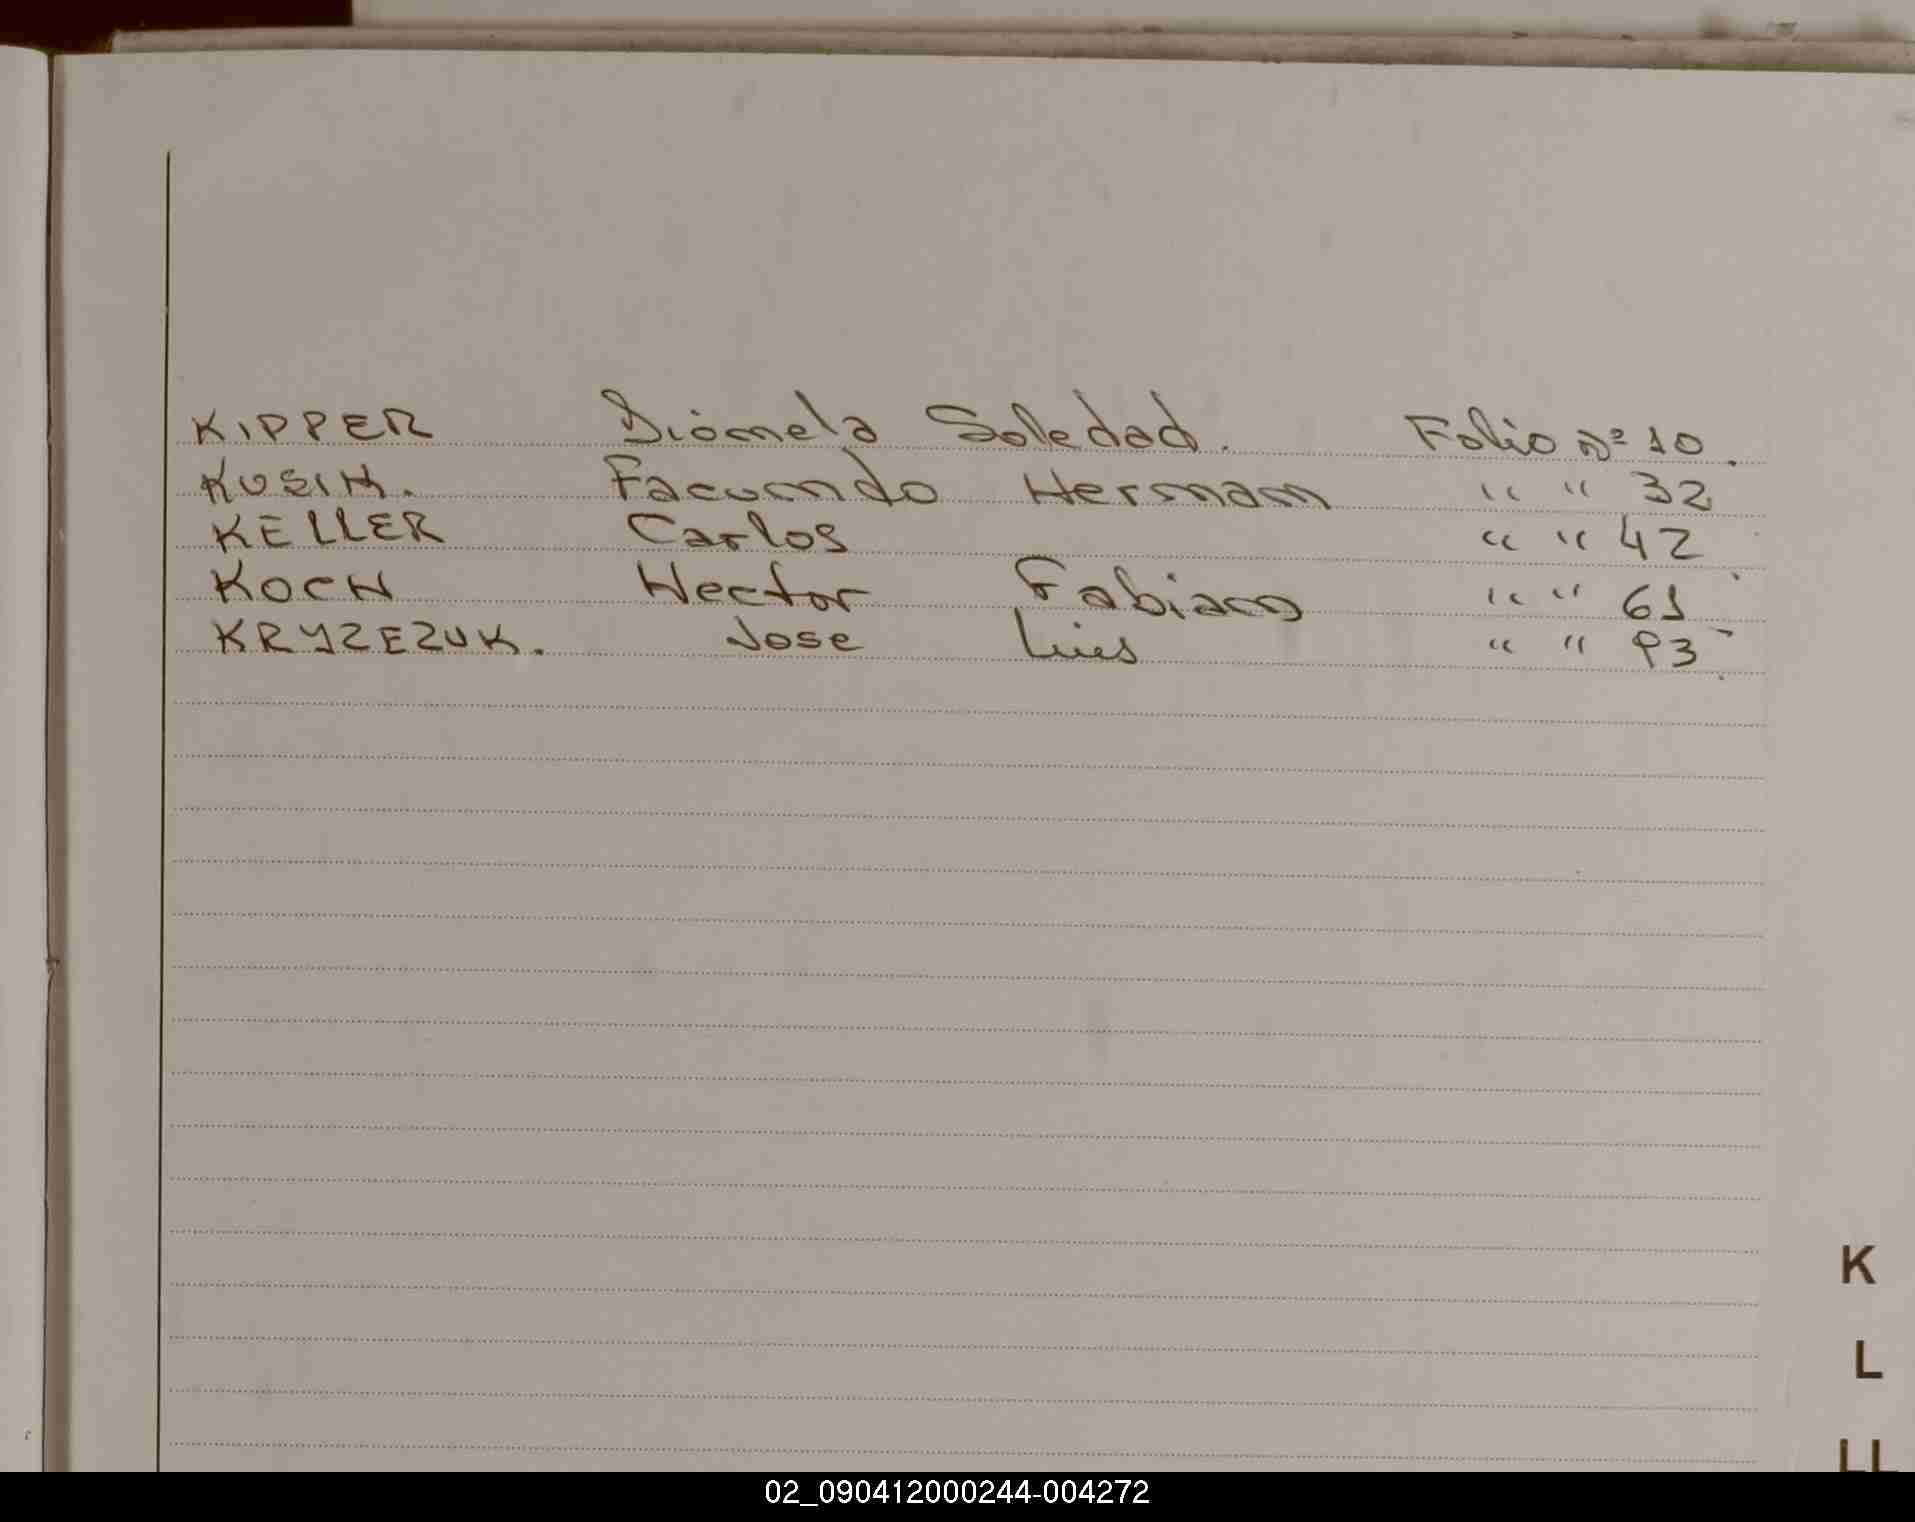 KIPPER Diomela Soledad. Folio Nº 10.
KUSIN. Facundo Hernan " " 32
KELLER Carlos " " 42
KOCH Hector Fabian " " 61
KRYZEZUK. Jose Luis " " 93
K
L
LL
02_090412000244-004272